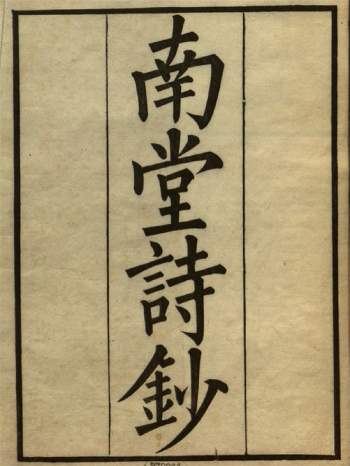 南堂詩鈔